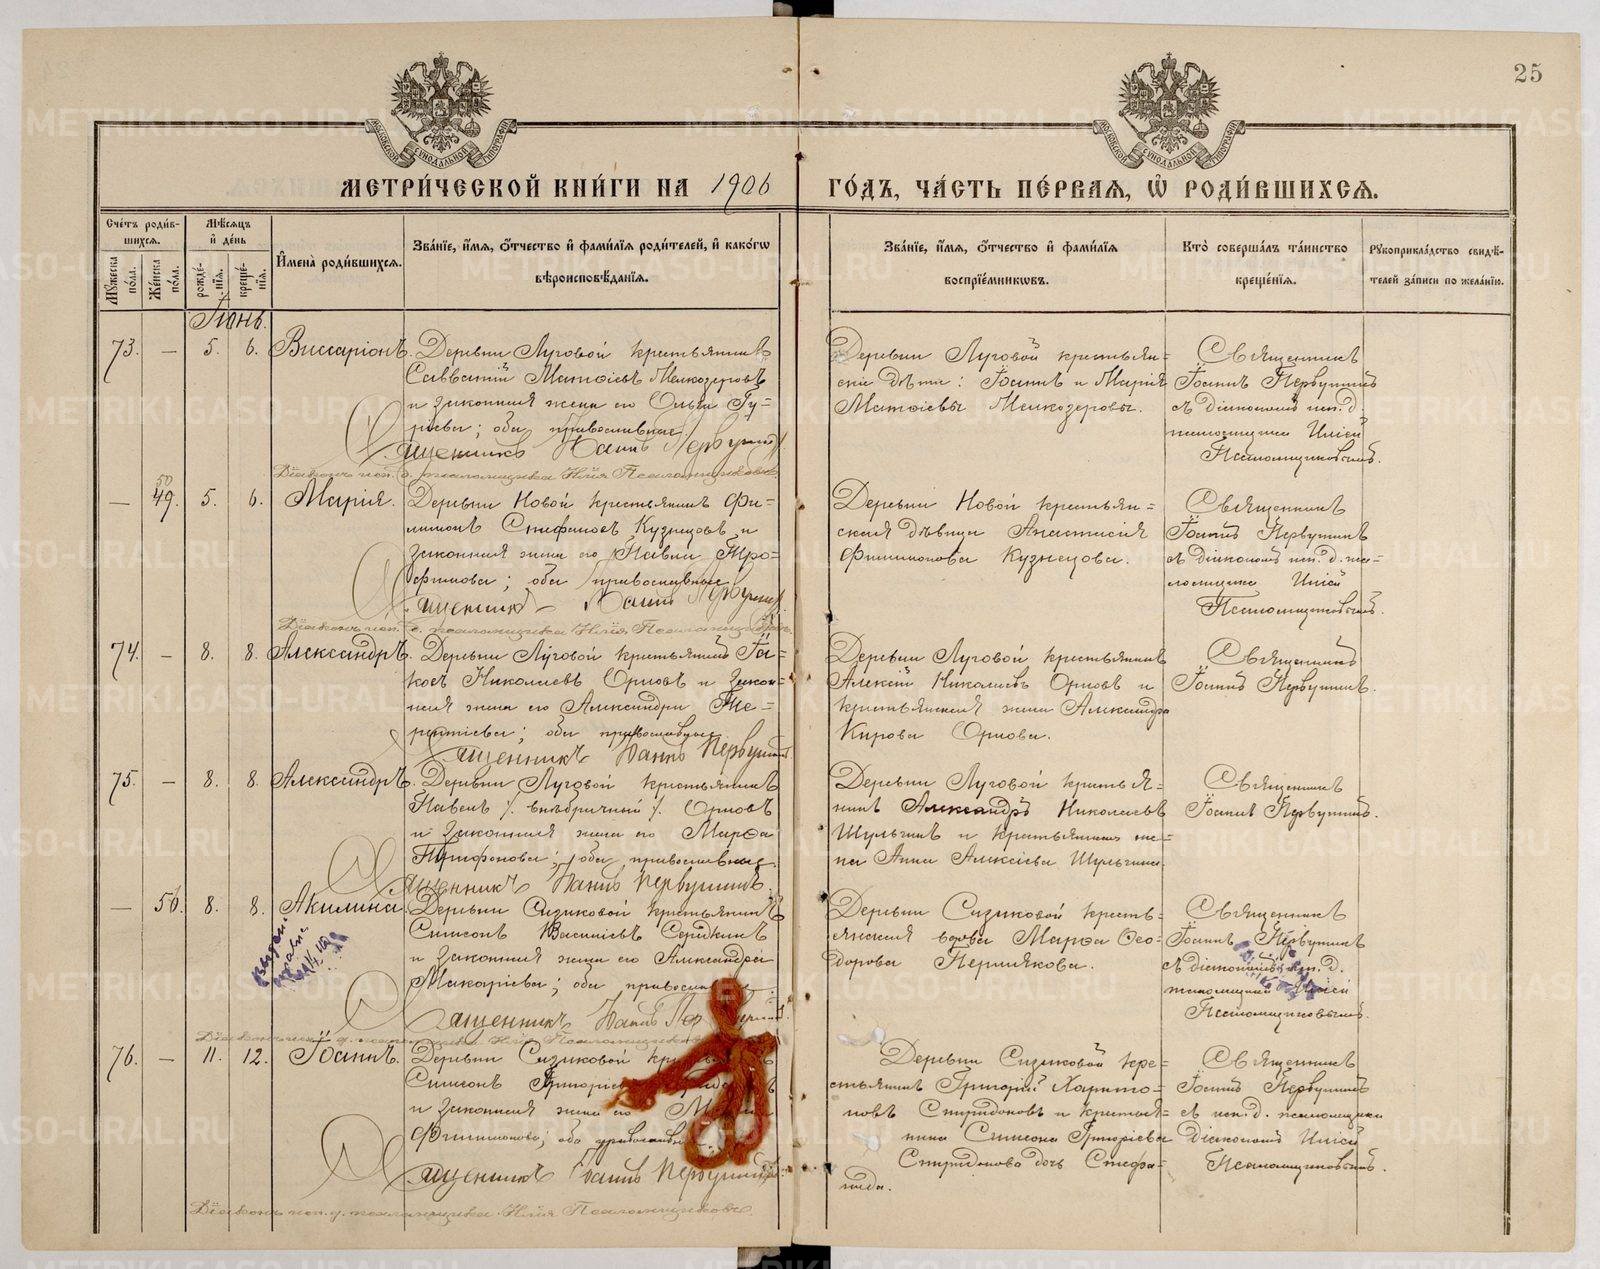 25
МЕТРИ́ЧЕСКОЙ КНИ́ГИ НА 1906 ГО́ДЪ, ЧА́СТЬ ПЕ́РВАЯ, Ѽ РОДИ́ВШИХСѦ.
Сче́тъ роди́вшихсѧ.
Мꙋ́жеска по́ла.
Же́нска по́ла.
Мѣ́сѧцъ и҆ де́нь
рожде́нїѧ.
креще́нїѧ.
И҆мена̀ роди́вшихсѧ.
Зва́нїе, и҆́мѧ, ѻ҆́тчество и҆ фами́лїѧ роди́телей, и҆ како́гѡ
вѣроисповѣ́данїѧ.
Зва́нїе, и҆́мѧ, ѻ҆́тчество и҆ фами́лїѧ
воспрїе́мникѡвъ.
Кто̀ соверша́лъ та́инство
креще́нїѧ.
Рꙋкоприкла́дство свидѣ́-
телей за́писи по жела́нїю.
Іюнь.
73. — 5. 6. Виссаріонъ.
Деревни Луговой крестьянинъ
Савватій Матѳіевъ Мелкозеровъ
и законная жена его Ольга Гу-
рьева; оба православные
Священникъ Іоаннъ Первушинъ
Діаконъ исп. д. псаломщика Илія Псаломщиковъ.
Деревни Луговой крестьян-
скіе дѣти: Іоаннъ и Марія
Матѳіевы Мелкозеровы.
Священникъ
Іоаннъ Первушинъ
съ діакономъ исп. д.
псаломщика Иліей
Псаломщиковымъ.
50
— 49. 5. 6. Марія.
Деревни Новой крестьянинъ Фи-
лимонъ Стефановъ Кузнецовъ и
законная жена его Павла Тро-
фимова; оба православные
Священникъ Іоаннъ Первушинъ
Діаконъ исп. д. псаломщика Илія Псаломщиковъ.
Деревни Новой крестьян-
ская дѣвица Анастасія
Филимонова Кузнецова.
Священникъ
Іоаннъ Первушинъ
съ діакономъ исп. д. пса-
ломщика Иліей
Псаломщиковымъ.
74. — 8. 8. Александръ.
Деревни Луговой крестьянинъ Іа-
ковъ Николаевъ Орловъ и закон-
ная жена его Александра Те-
рентіева; оба православные
Священникъ Іоаннъ Первушинъ
Деревни Луговой крестьянинъ
Алексій Николаевъ Орловъ и
крестьянская жена Александра
Кирова Орлова.
Священникъ
Іоаннъ Первушинъ.
75. — 8. 8. Александръ.
Деревни Луговой крестьянинъ
Павелъ /. внѣбрачный /. Орловъ
и законная жена его Марѳа
Трифонова; оба православные
Священникъ Іоаннъ Первушинъ.
Деревни Луговой крестья-
нинъ Александръ Николаевъ
Шульгинъ и крестьянская же-
на Анна Алексіева Шульгина.
Священникъ
Іоаннъ Первушинъ.
— 51. 8. 8. Акилина.
Деревни Сизиковой крестьянинъ
Симеонъ Васильевъ Середкинъ
и законная жена его Александра
Макаріева; оба православные.
Священникъ Іоаннъ Первушинъ.
Діаконъ исп. д. псаломщика Илія Псаломщиковъ
Деревни Сизиковой кресть-
янская вдова Марѳа Ѳео-
дорова Пермякова.
Священникъ
Іоаннъ Первушинъ
съ діакономъ исп. д.
псаломщика Иліей
Псаломщиковымъ.
76. — 11. 12. Іоаннъ.
Деревни Сизиковой
Симеонъ Григорьевъ
и законная жена его
Филимонова; оба православные
Священникъ Іоаннъ Первушинъ.
Діаконъ исп. д. псаломщика Илія Псаломщиковъ.
Деревни Сизиковой кре-
стьянинъ Григорій Харито-
новъ Спиридоновъ и крестья-
нина Симеона Григоріева
Спиридонова дочь Стефа-
нида.
Священникъ
Іоаннъ Первушинъ
съ исп. д. псаломщика
Діакономъ Иліей
Псаломщиковымъ.
METRIKI.GASO-URAL.RU